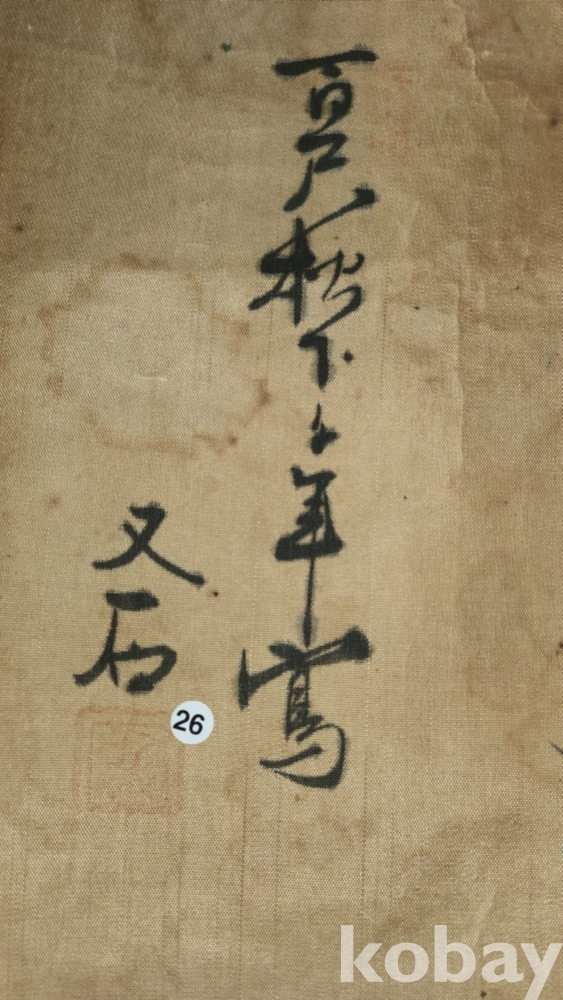 百尺松下年寫
又石
26
kobay